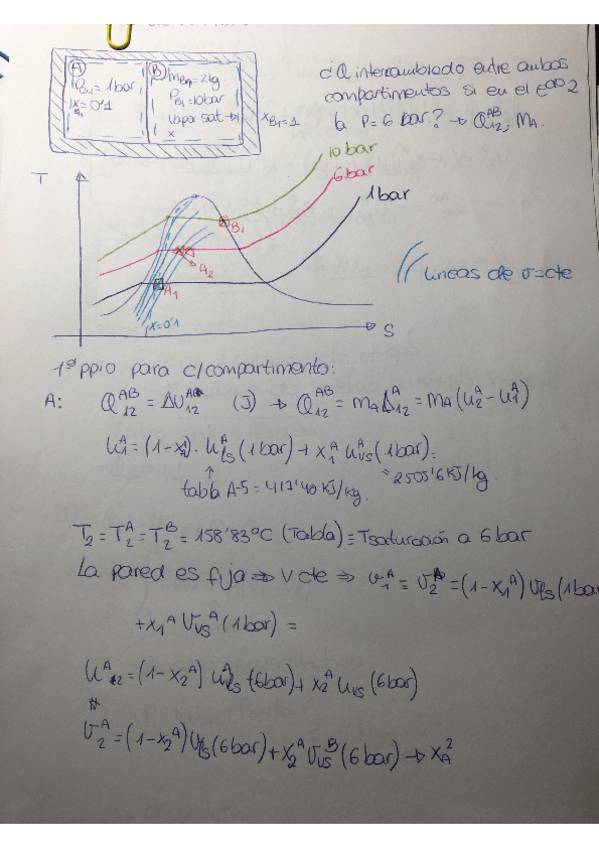 A
P_A1 = 1bar
x_A1 = 0'1
B
m_B = 2kg.
P_B1 = 10bar
vapor sat →
x
x_B1 = 1
¿Q intercambiado entre ambos
compartimentos si en el edo 2
la P = 6 bar? → Q_12^AB, m_A.
10 bar
6 bar
1 bar
T
B1
A2
A1
x=0'1
S
líneas de v=cte
1er ppio para c/compartimento:
A: Q_12^AB = ΔU_12^A (J) → Q_12^AB = m_A Δ_12^A = m_A (u_2^A - u_1^A)
u_1^A = (1-x_1^A) · u_ls^A (1bar) + x_1^A u_vs^A (1bar) =
↑
tabla A-5 = 417'40 KJ/kg.
= 2505'6 KJ/kg.
T_2 = T_2^A = T_2^B = 158'83°C (Tabla) = Tsaturación a 6 bar
La pared es fija ⇒ V cte ⇒ v_1^A = v_2^A = (1-x_1^A) v_ls (1bar
+ x_1^A v_vs^A (1bar) =
u_2^A = (1-x_2^A) u_ls^A (6bar) + x_2^A u_vs (6bar)
v_2^A = (1-x_2^A) v_ls (6bar) + x_2^A v_vs^B (6bar) → x_A^2